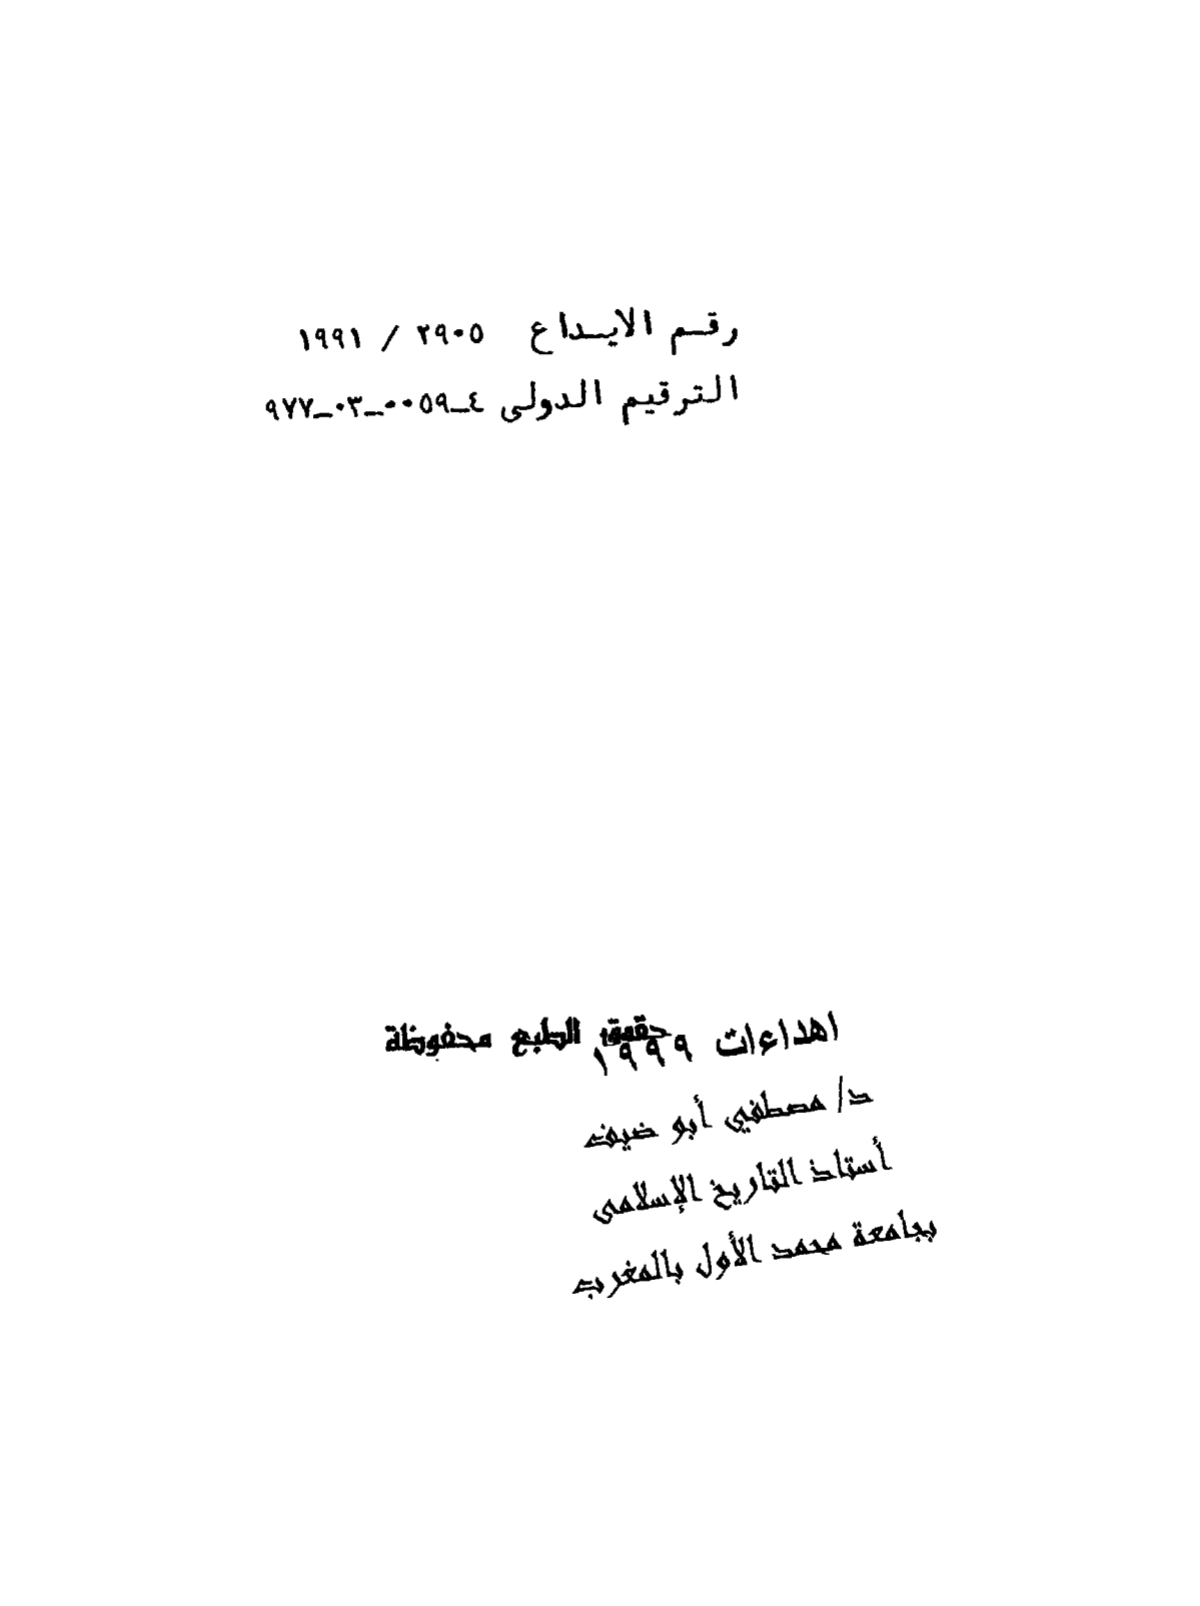 رقم الايداع ٢٩٠٥ / ١٩٩١
الترقيم الدولى ٤ــ٠٠٥٩ــ٠٣ــ٩٧٧
حقوق الطبع محفوظة
اهداءات ١٩٩٩
د/ مصطفي أبو ضيف
أستاذ التاريخ الإسلامى
بجامعة محمد الأول بالمغرب